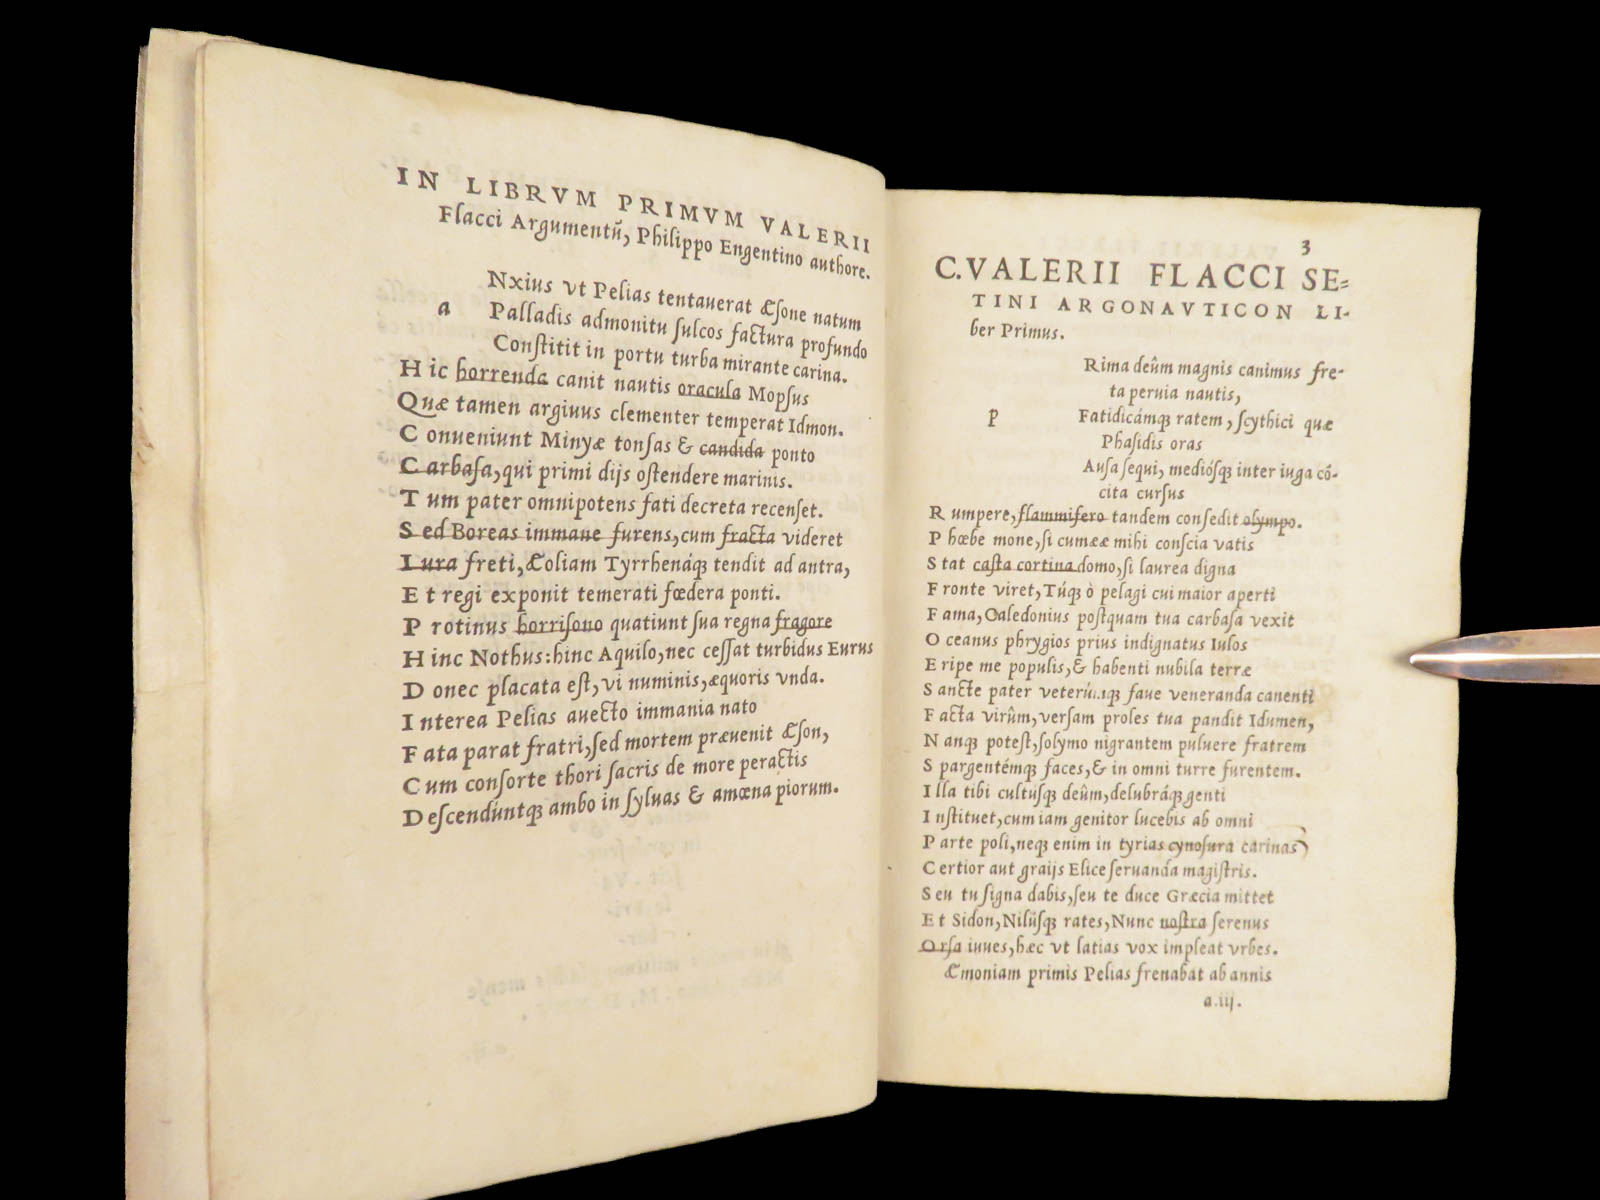 IN LIBRVM PRIMVM VALERII
Flacci Argumentũ, Philippo Engentino authore.
Nxius vt Pelias tentauerat Æſone natum
a Palladis admonitu ſulcos factura profundo
Conſtitit in portu turba mirante carina.
Hic horrenda canit nautis oracula Mopſus
Quæ tamen argiuus clementer temperat Idmon.
Conueniunt Minyæ tonſas & candida ponto
Carbaſa, qui primi dijs oſtendere marinis.
Tum pater omnipotens fati decreta recenſet.
Sed Boreas immane furens, cum fracta videret
Iura freti, Æoliam Tyrrhenáqꝫ tendit ad antra,
Et regi exponit temerati fœdera ponti.
Protinus horriſono quatiunt ſua regna fragore
Hinc Nothus: hinc Aquilo, nec ceſſat turbidus Eurus
Donec placata eſt, vi numinis, æquoris vnda.
Interea Pelias auecto immania nato
Fata parat fratri, ſed mortem præuenit Æſon,
Cum conſorte thori ſacris de more peractis
Deſcendúntqꝫ ambo in ſyluas & amœna piorum.
3
C. VALERII FLACCI SE-
TINI ARGONAVTICON LI-
ber Primus.
Rima deûm magnis canimus fre-
ta peruia nautis,
p Fatidicámqꝫ ratem, ſcythici quæ
Phaſidis oras
Auſa ſequi, medióſqꝫ inter iuga cõ-
cita curſus
Rumpere, flammifero tandem conſedit olympo.
Phœbe mone, ſi cumææ mihi conſcia vatis
Stat caſta cortina domo, ſi laurea digna
Fronte viret, Túqꝫ ò pelagi cui maior aperti
Fama, Caledonius poſtquam tua carbaſa vexit
Oceanus phrygios prius indignatus Iulos
Eripe me populis, & habenti nubila terræ
Sancte pater veterúmqꝫ faue veneranda canenti
Facta virûm, verſam proles tua pandit Idumen,
Nanqꝫ poteſt, ſolymo nigrantem puluere fratrem
Spargentémqꝫ faces, & in omni turre furentem.
Illa tibi cultúſqꝫ deûm, delubráqꝫ genti
Inſtituet, cum iam genitor lucebis ab omni
Parte poli, neqꝫ enim in tyrias cynoſura carinas
Certior aut graijs Elice ſeruanda magiſtris.
Seu tu ſigna dabis, ſeu te duce Græcia mittet
Et Sidon, Nilúſqꝫ rates, Nunc noſtra ſerenus
Orſa iuues, hæc vt latias vox impleat vrbes.
Æmoniam primis Pelias frenabat ab annis
a.iij.